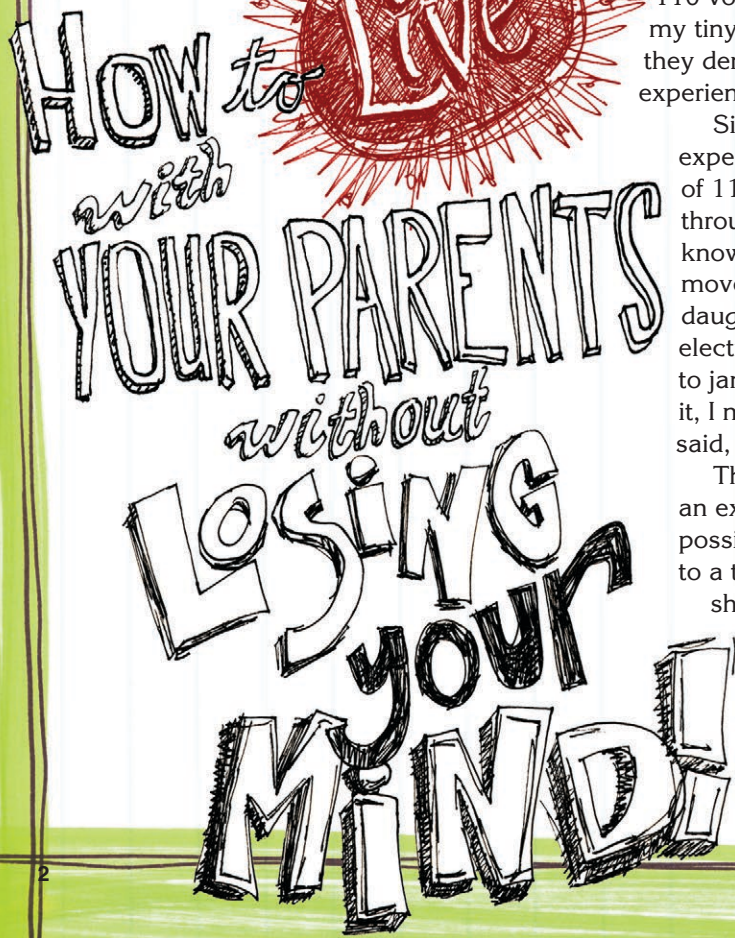 HOW to Live
with
YOUR PARENTS
without
LOSiNG
your
MiND!
110 vo
my tiny
they
experien
Si
expe
of 11
throu
know
move
daug
elect
to jar
it, I
said,
Th
an ex
possi
to a t
sh
2